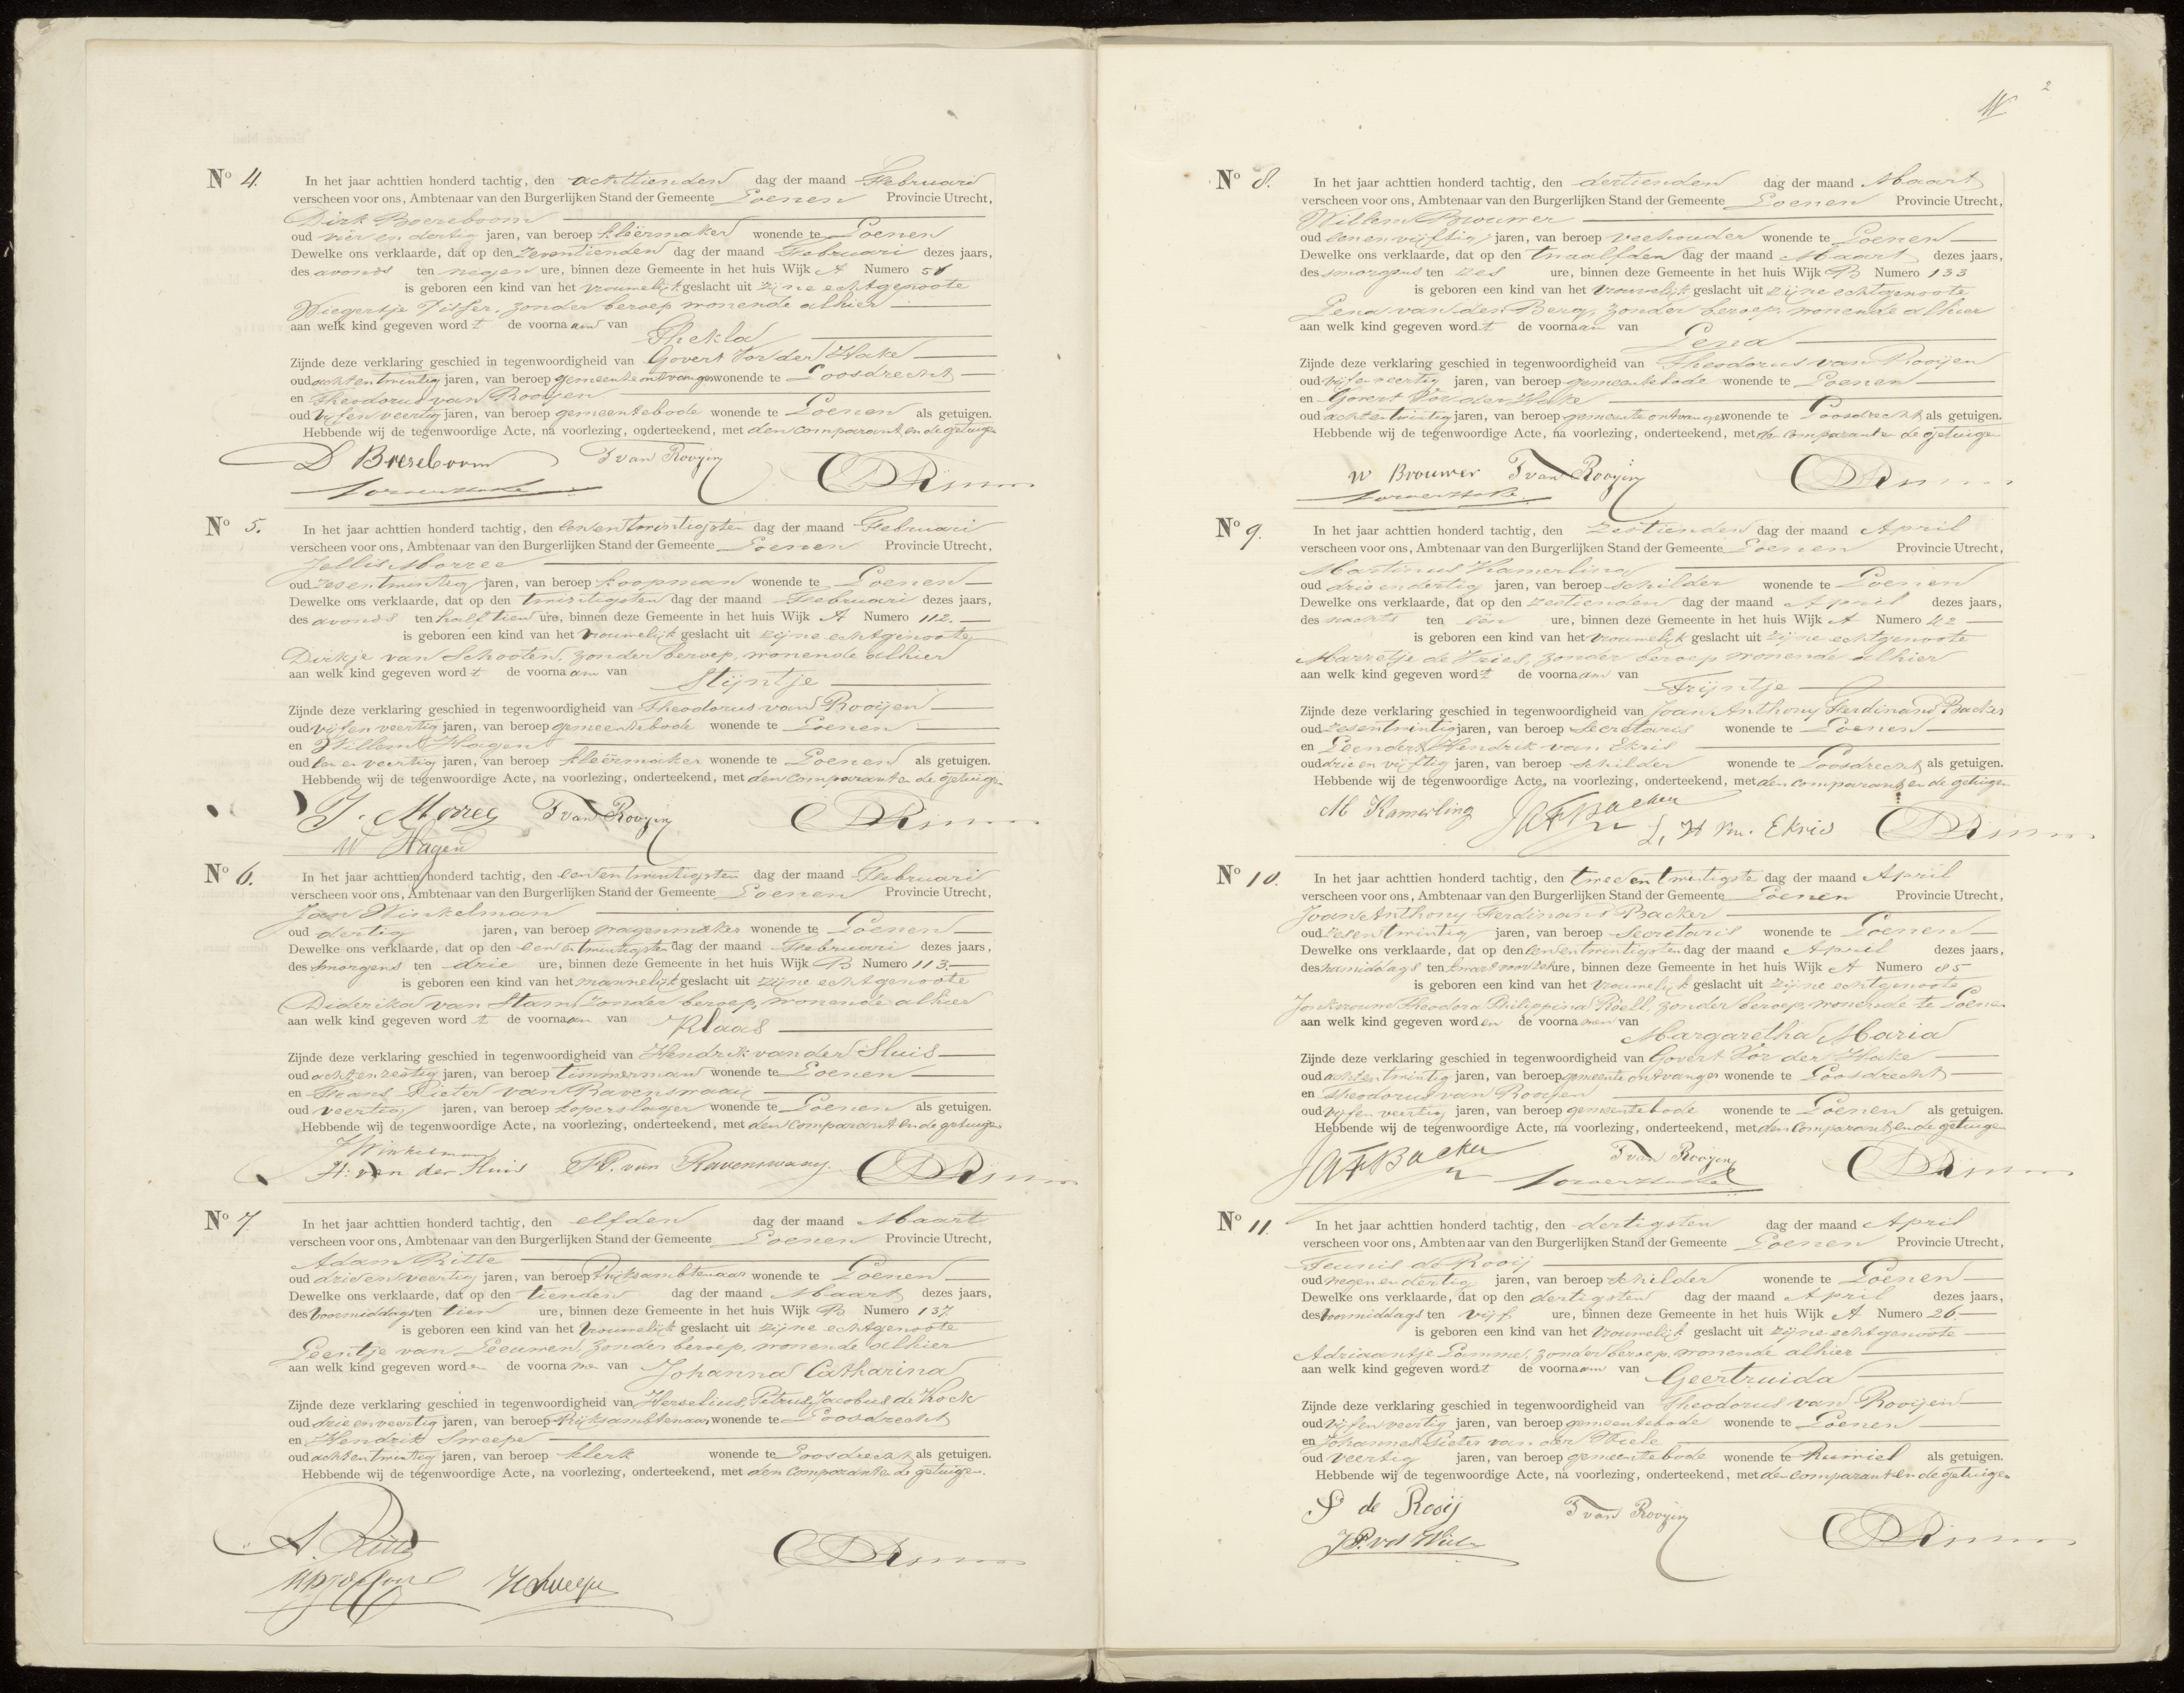 Nº 4.
In het jaar achttien honderd tachtig, den achttienden dag der maand Februari
verscheen voor ons, Ambtenaar van den Burgerlijken Stand der Gemeente Loenen Provincie Utrecht,
Dirk Boereboom
oud vier en dertig jaren, van beroep kleermaker wonende te Loenen
Dewelke ons verklaarde, dat op den zeventienden dag der maand Februari dezes jaars,
des avonds ten negen ure, binnen deze Gemeente in het huis Wijk A Numero
is geboren een kind van het vrouwelijk geslacht uit zijne echtgenoote
Wiegertje zonder beroep, wonende alhier
aan welk kind gegeven wordt de voornaam van
Thekla
Zijnde deze verklaring geschied in tegenwoordigheid van Govert Vor der Hake
oud acht en twintig jaren, van beroep gemeente ontvanger wonende te Loosdrecht
en Theodorus van Rooijen
oud vijf en veertig jaren, van beroep gemeentebode wonende te Loenen als getuigen.
Hebbende wij de tegenwoordige Acte, na voorlezing, onderteekend, met den comparant en de getuigen
D Boereboom T van Rooijen
Nº 5.
In het jaar achttien honderd tachtig, den een en twintigsten dag der maand Februari
verscheen voor ons, Ambtenaar van den Burgerlijken Stand der Gemeente Loenen Provincie Utrecht,
Jellis Morree
oud zes en twintig jaren, van beroep koopman wonende te Loenen
Dewelke ons verklaarde, dat op den twintigsten dag der maand Februari dezes jaars,
des avonds ten half tien ure, binnen deze Gemeente in het huis Wijk A Numero 112.
is geboren een kind van het vrouwelijk geslacht uit zijne echtgenoote
Dirkje van Schooten, zonder beroep, wonende alhier
aan welk kind gegeven wordt de voornaam van
Stijntje
Zijnde deze verklaring geschied in tegenwoordigheid van Theodorus van Rooijen
oud vijf en veertig jaren, van beroep gemeentebode wonende te Loenen
en Willem Hagen
oud een en veertig jaren, van beroep kleermaker wonende te Loenen als getuigen.
Hebbende wij de tegenwoordige Acte, na voorlezing, onderteekend, met den comparant en de getuigen
J. Morree T van Rooijen
W Hagen
Nº 6.
In het jaar achttien honderd tachtig, den een en twintigsten dag der maand Februari
verscheen voor ons, Ambtenaar van den Burgerlijken Stand der Gemeente Loenen Provincie Utrecht,
Jan Winkelman
oud dertig jaren, van beroep wagenmaker wonende te Loenen
Dewelke ons verklaarde, dat op den een en twintigsten dag der maand Februari dezes jaars,
des smorgens ten drie ure, binnen deze Gemeente in het huis Wijk B Numero 113.
is geboren een kind van het mannelijk geslacht uit zijne echtgenoote
Diderika van Stam zonder beroep, wonende alhier
aan welk kind gegeven wordt de voornaam van Klaas
Zijnde deze verklaring geschied in tegenwoordigheid van Hendrik van der Sluis
oud acht en zestig jaren, van beroep timmerman wonende te Loenen
en Frans Pieter van Ravenswaaij
oud veertig jaren, van beroep koperslager wonende te Loenen als getuigen.
Hebbende wij de tegenwoordige Acte, na voorlezing, onderteekend, met den comparant en de getuigen
J Winkelman
H: van der Sluis F.P. van Ravenswaay.
Nº 7.
In het jaar achttien honderd tachtig, den elfden dag der maand Maart
verscheen voor ons, Ambtenaar van den Burgerlijken Stand der Gemeente Loenen Provincie Utrecht,
Adam Ritte
oud drie en veertig jaren, van beroep Rijksambtenaar wonende te Loenen
Dewelke ons verklaarde, dat op den tienden dag der maand Maart dezes jaars,
des voormiddags ten tien ure, binnen deze Gemeente in het huis Wijk B Numero 137
is geboren een kind van het vrouwelijk geslacht uit zijne echtgenoote
Leentje van Leeuwen, zonder beroep, wonende alhier
aan welk kind gegeven worden de voornamen van Johanna Catharina
Zijnde deze verklaring geschied in tegenwoordigheid van Herselius, Petrus, Jacobus de Kock
oud drie en veertig jaren, van beroep Rijksambtenaar wonende te Loosdrecht
en Hendrik Sweepe
oud acht en twintig jaren, van beroep klerk wonende te Loosdrecht als getuigen.
Hebbende wij de tegenwoordige Acte, na voorlezing, onderteekend, met den comparant en de getuigen.
A. Ritte
HSweepe
2
Nº 8.
In het jaar achttien honderd tachtig, den dertienden dag der maand Maart
verscheen voor ons, Ambtenaar van den Burgerlijken Stand der Gemeente Loenen Provincie Utrecht,
Willem Brouwer
oud een en vijftig jaren, van beroep veehouder wonende te Loenen
Dewelke ons verklaarde, dat op den twaalfden dag der maand Maart dezes jaars,
des smorgens ten zes ure, binnen deze Gemeente in het huis Wijk B Numero 133
is geboren een kind van het vrouwelijk geslacht uit zijne echtgenoote
Lena van den Berg, zonder beroep, wonende alhier
aan welk kind gegeven wordt de voornaam van
Lena
Zijnde deze verklaring geschied in tegenwoordigheid van Theodorus van Rooijen
oud vijf en veertig jaren, van beroep gemeentebode wonende te Loenen
en Govert Vor der Hake
oud acht en twintig jaren, van beroep gemeente ontvanger wonende te Loosdrecht als getuigen.
Hebbende wij de tegenwoordige Acte, na voorlezing, onderteekend, met de comparant en de getuigen
W Brouwer T van Rooijen
Nº 9.
In het jaar achttien honderd tachtig, den zestienden dag der maand April
verscheen voor ons, Ambtenaar van den Burgerlijken Stand der Gemeente Loenen Provincie Utrecht,
Martinus Kamerling
oud drie en dertig jaren, van beroep schilder wonende te Loenen
Dewelke ons verklaarde, dat op den zestienden dag der maand April dezes jaars,
des nachts ten één ure, binnen deze Gemeente in het huis Wijk A Numero 42
is geboren een kind van het vrouwelijk geslacht uit zijne echtgenoote
Marretje de Vries, zonder beroep wonende alhier
aan welk kind gegeven wordt de voornaam van
Trijntje
Zijnde deze verklaring geschied in tegenwoordigheid van Joan Anthony Ferdinand Backer
oud zes en twintig jaren, van beroep Secretaris wonende te Loenen
en Leendert Hendrik van Ekris
oud drie en vijftig jaren, van beroep schilder wonende te Loosdrecht als getuigen.
Hebbende wij de tegenwoordige Acte, na voorlezing, onderteekend, met den comparant en de getuigen
M Kamerling JAFBacker L, H vn. Ekris
Nº 10.
In het jaar achttien honderd tachtig, den twee en twintigste dag der maand April
verscheen voor ons, Ambtenaar van den Burgerlijken Stand der Gemeente Loenen Provincie Utrecht,
Joan Anthony Ferdinand Backer
oud zes en twintig jaren, van beroep Secretaris wonende te Loenen
Dewelke ons verklaarde, dat op den een en twintigsten dag der maand April dezes jaars,
des namiddags ten kwart voor zes ure, binnen deze Gemeente in het huis Wijk A Numero 85
is geboren een kind van het vrouwelijk geslacht uit zijne echtgenoote
Jonkvrouwe Theodora Philippina Röell, zonder beroep, wonende te Loenen
aan welk kind gegeven worden de voornamen van
Margaretha Maria
Zijnde deze verklaring geschied in tegenwoordigheid van Govert Vor der Hake
oud acht en twintig jaren, van beroep gemeente ontvanger wonende te Loosdrecht
en Theodorus van Rooijen
oud vijf en veertig jaren, van beroep gemeentebode wonende te Loenen als getuigen.
Hebbende wij de tegenwoordige Acte, na voorlezing, onderteekend, met den comparant en de getuigen
JAFBacker T van Rooijen
Nº 11.
In het jaar achttien honderd tachtig, den dertigsten dag der maand April
verscheen voor ons, Ambtenaar van den Burgerlijken Stand der Gemeente Loenen Provincie Utrecht,
Teunis de Rooij
oud negen en dertig jaren, van beroep schilder wonende te Loenen
Dewelke ons verklaarde, dat op den dertigsten dag der maand April dezes jaars,
des voormiddags ten vijf ure, binnen deze Gemeente in het huis Wijk A Numero 26.
is geboren een kind van het vrouwelijk geslacht uit zijne echtgenoote
Adriaantje Lamme, zonder beroep, wonende alhier
aan welk kind gegeven wordt de voornaam van
Geertruida
Zijnde deze verklaring geschied in tegenwoordigheid van Theodorus van Rooijen
oud vijf en veertig jaren, van beroep gemeentebode wonende te Loenen
en Johannes Pieter van der Wiele
oud veertig jaren, van beroep gemeentebode wonende te Ruwiel als getuigen.
Hebbende wij de tegenwoordige Acte, na voorlezing, onderteekend, met den comparant en de getuigen
de Rooij T van Rooijen